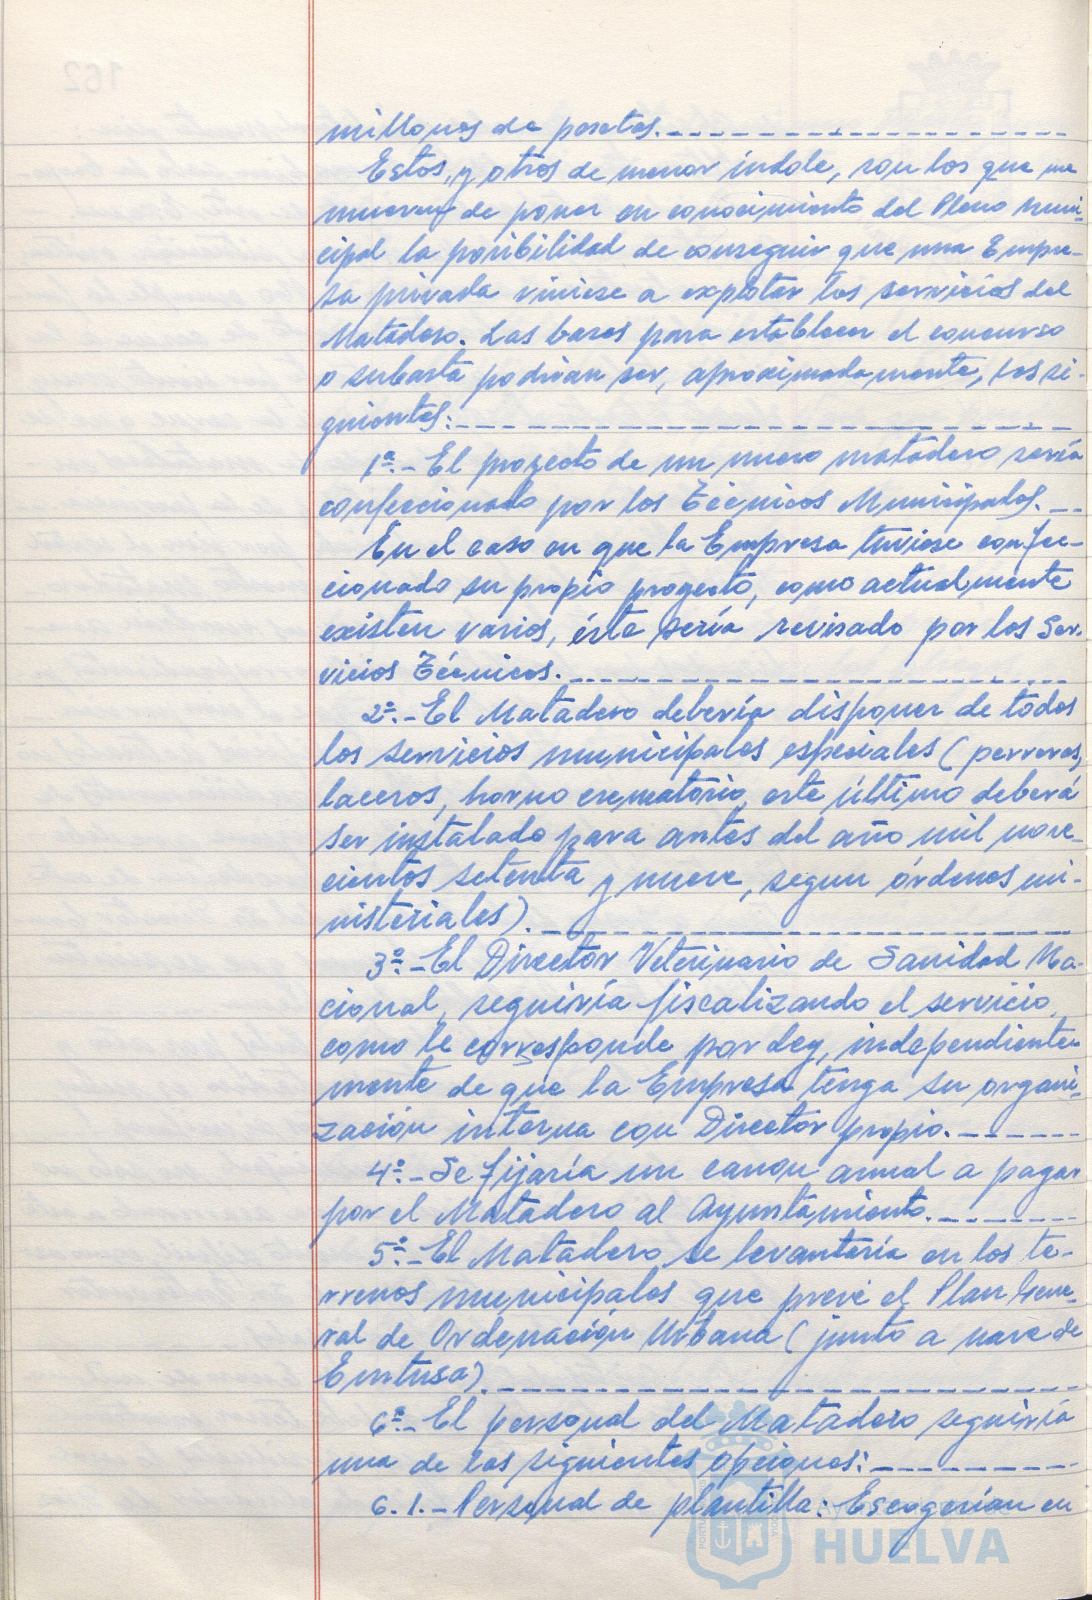 millones de pesetas.
Estos, y otros de menor índole, son los que me
mueven de poner en conocimiento del Pleno Muni-
cipal la posibilidad de conseguir que una Empre-
sa privada viniese a explotar los servicios del
Matadero. Las bases para establecer el concurso
o subasta podrian ser, aproximadamente, las si-
guientes:
1ª.- El proyecto de un nuevo matadero sería
confeccionado por los Técnicos Municipales.
En el caso en que la Empresa tuviese confec-
cionado su propio proyecto, como actualmente
existen varios, éste sería revisado por los Ser-
vicios Técnicos.
2ª.- El Matadero debería disponer de todos
los servicios municipales especiales (perreras,
laceros, horno crematorio, este último deberá
ser instalado para antes del año mil nove-
cientos setenta y nueve, segun órdenes mi-
nisteriales).
3ª.- El Director Veterinario de Sanidad Na-
cional, seguiría fiscalizando el servicio,
como le corresponde por Ley, independiente-
mente de que la Empresa tenga su organi-
zación interna con Director propio.
4ª.- Se fijaría un canon anual a pagar
por el Matadero al Ayuntamiento.
5ª.- El Matadero se levantaría en los te-
rrenos municipales que prevé el Plan Gene-
ral de Ordenación Urbana (junto a nave de
Emtusa).
6ª.- El personal del Matadero seguiría
una de las siguientes opciones:
6.1.- Personal de plantilla: Escogerían en
HUELVA